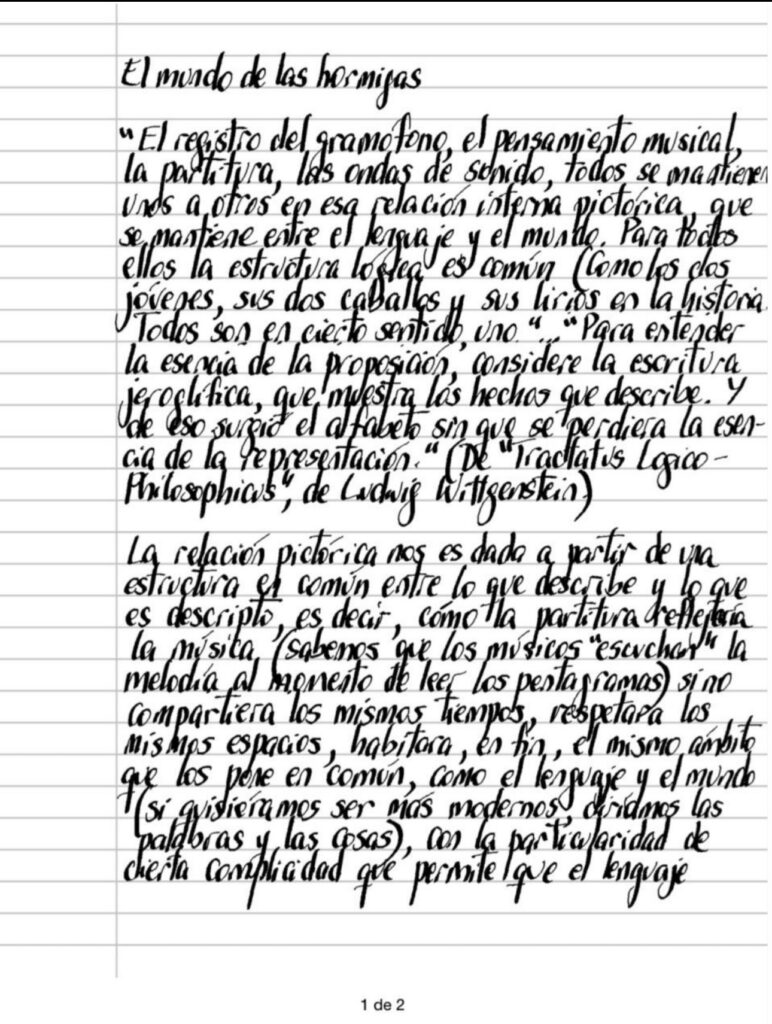 El mundo de las hormigas
"El registro del gramófono, el pensamiento musical,
la partitura, las ondas de sonido, todos se mantienen
unos a otros en esa relación interna pictórica, que
se mantiene entre el lenguaje y el mundo. Para todos
ellos la estructura lógica es común (Como los dos
jóvenes, sus dos caballos y sus lirios en la historia.
Todos son en cierto sentido, uno "... "Para entender
la esencia de la proposición, considere la escritura
jeroglífica, que muestra los hechos que describe. Y
de eso surgió el alfabeto sin que se perdiera la esen-
cia de la representación." (De "Tractatus Logico-
Philosophicus", de Ludwig Wittgenstein)
La relación pictórica nos es dada a partir de una
estructura en común entre lo que describe y lo que
es descripto, es decir, cómo la partitura reflejaría
la música (sabemos que los músicos "escuchan" la
melodía al momento de leer los pentagramas) si no
compartiera los mismos tiempos, respetara los
mismos espacios, habitara, en fin, el mismo ámbito
que los pone en común, como el lenguaje y el mundo
(si quisiéramos ser más modernos, diríamos las
palabras y las cosas), con la particularidad de
cierta complicidad que permite que el lenguaje
1 de 2